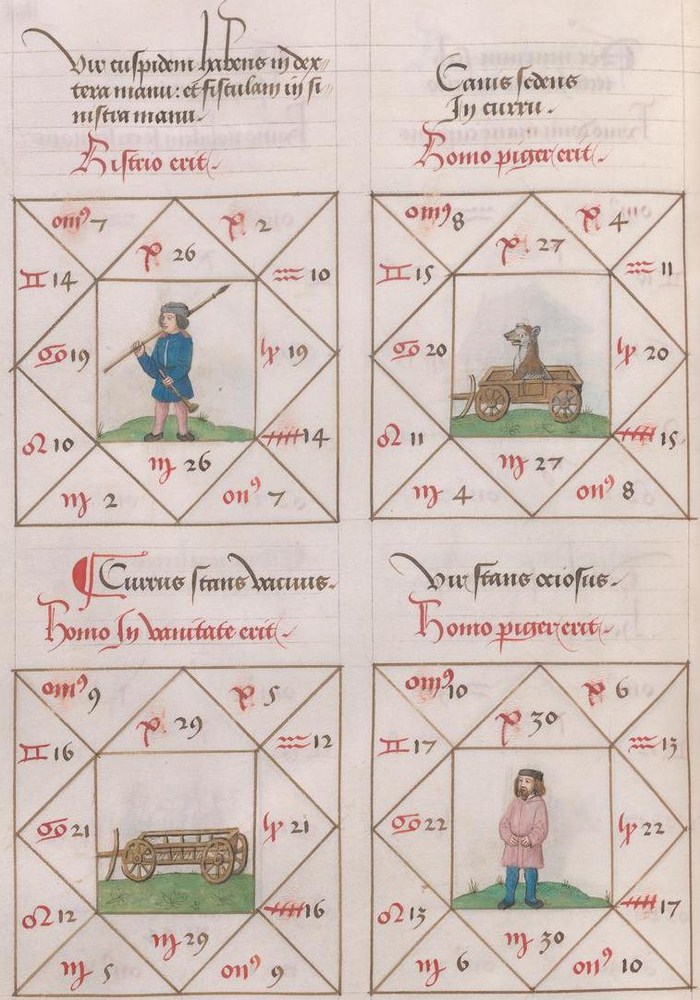 Vir cuspidem habens in dex-
tera manu: et fistulam in si-
nistra manu.
Histrio erit.
7
2
26
♊ 14
♒ 10
♋ 19
19
♌ 10
14
26
2
7
Canis sedens
In curru.
Homo piger erit.
8
4
27
♊ 15
♒ 11
♋ 20
20
♌ 11
15
27
4
8
Currus stans vacuus.
Homo In vanitate erit.
9
5
29
♊ 16
♒ 12
♋ 21
21
♌ 12
16
29
5
9
Vir stans ociosus.
Homo piger erit.
10
6
30
♊ 17
♒ 13
♋ 22
22
♌ 13
17
30
6
10